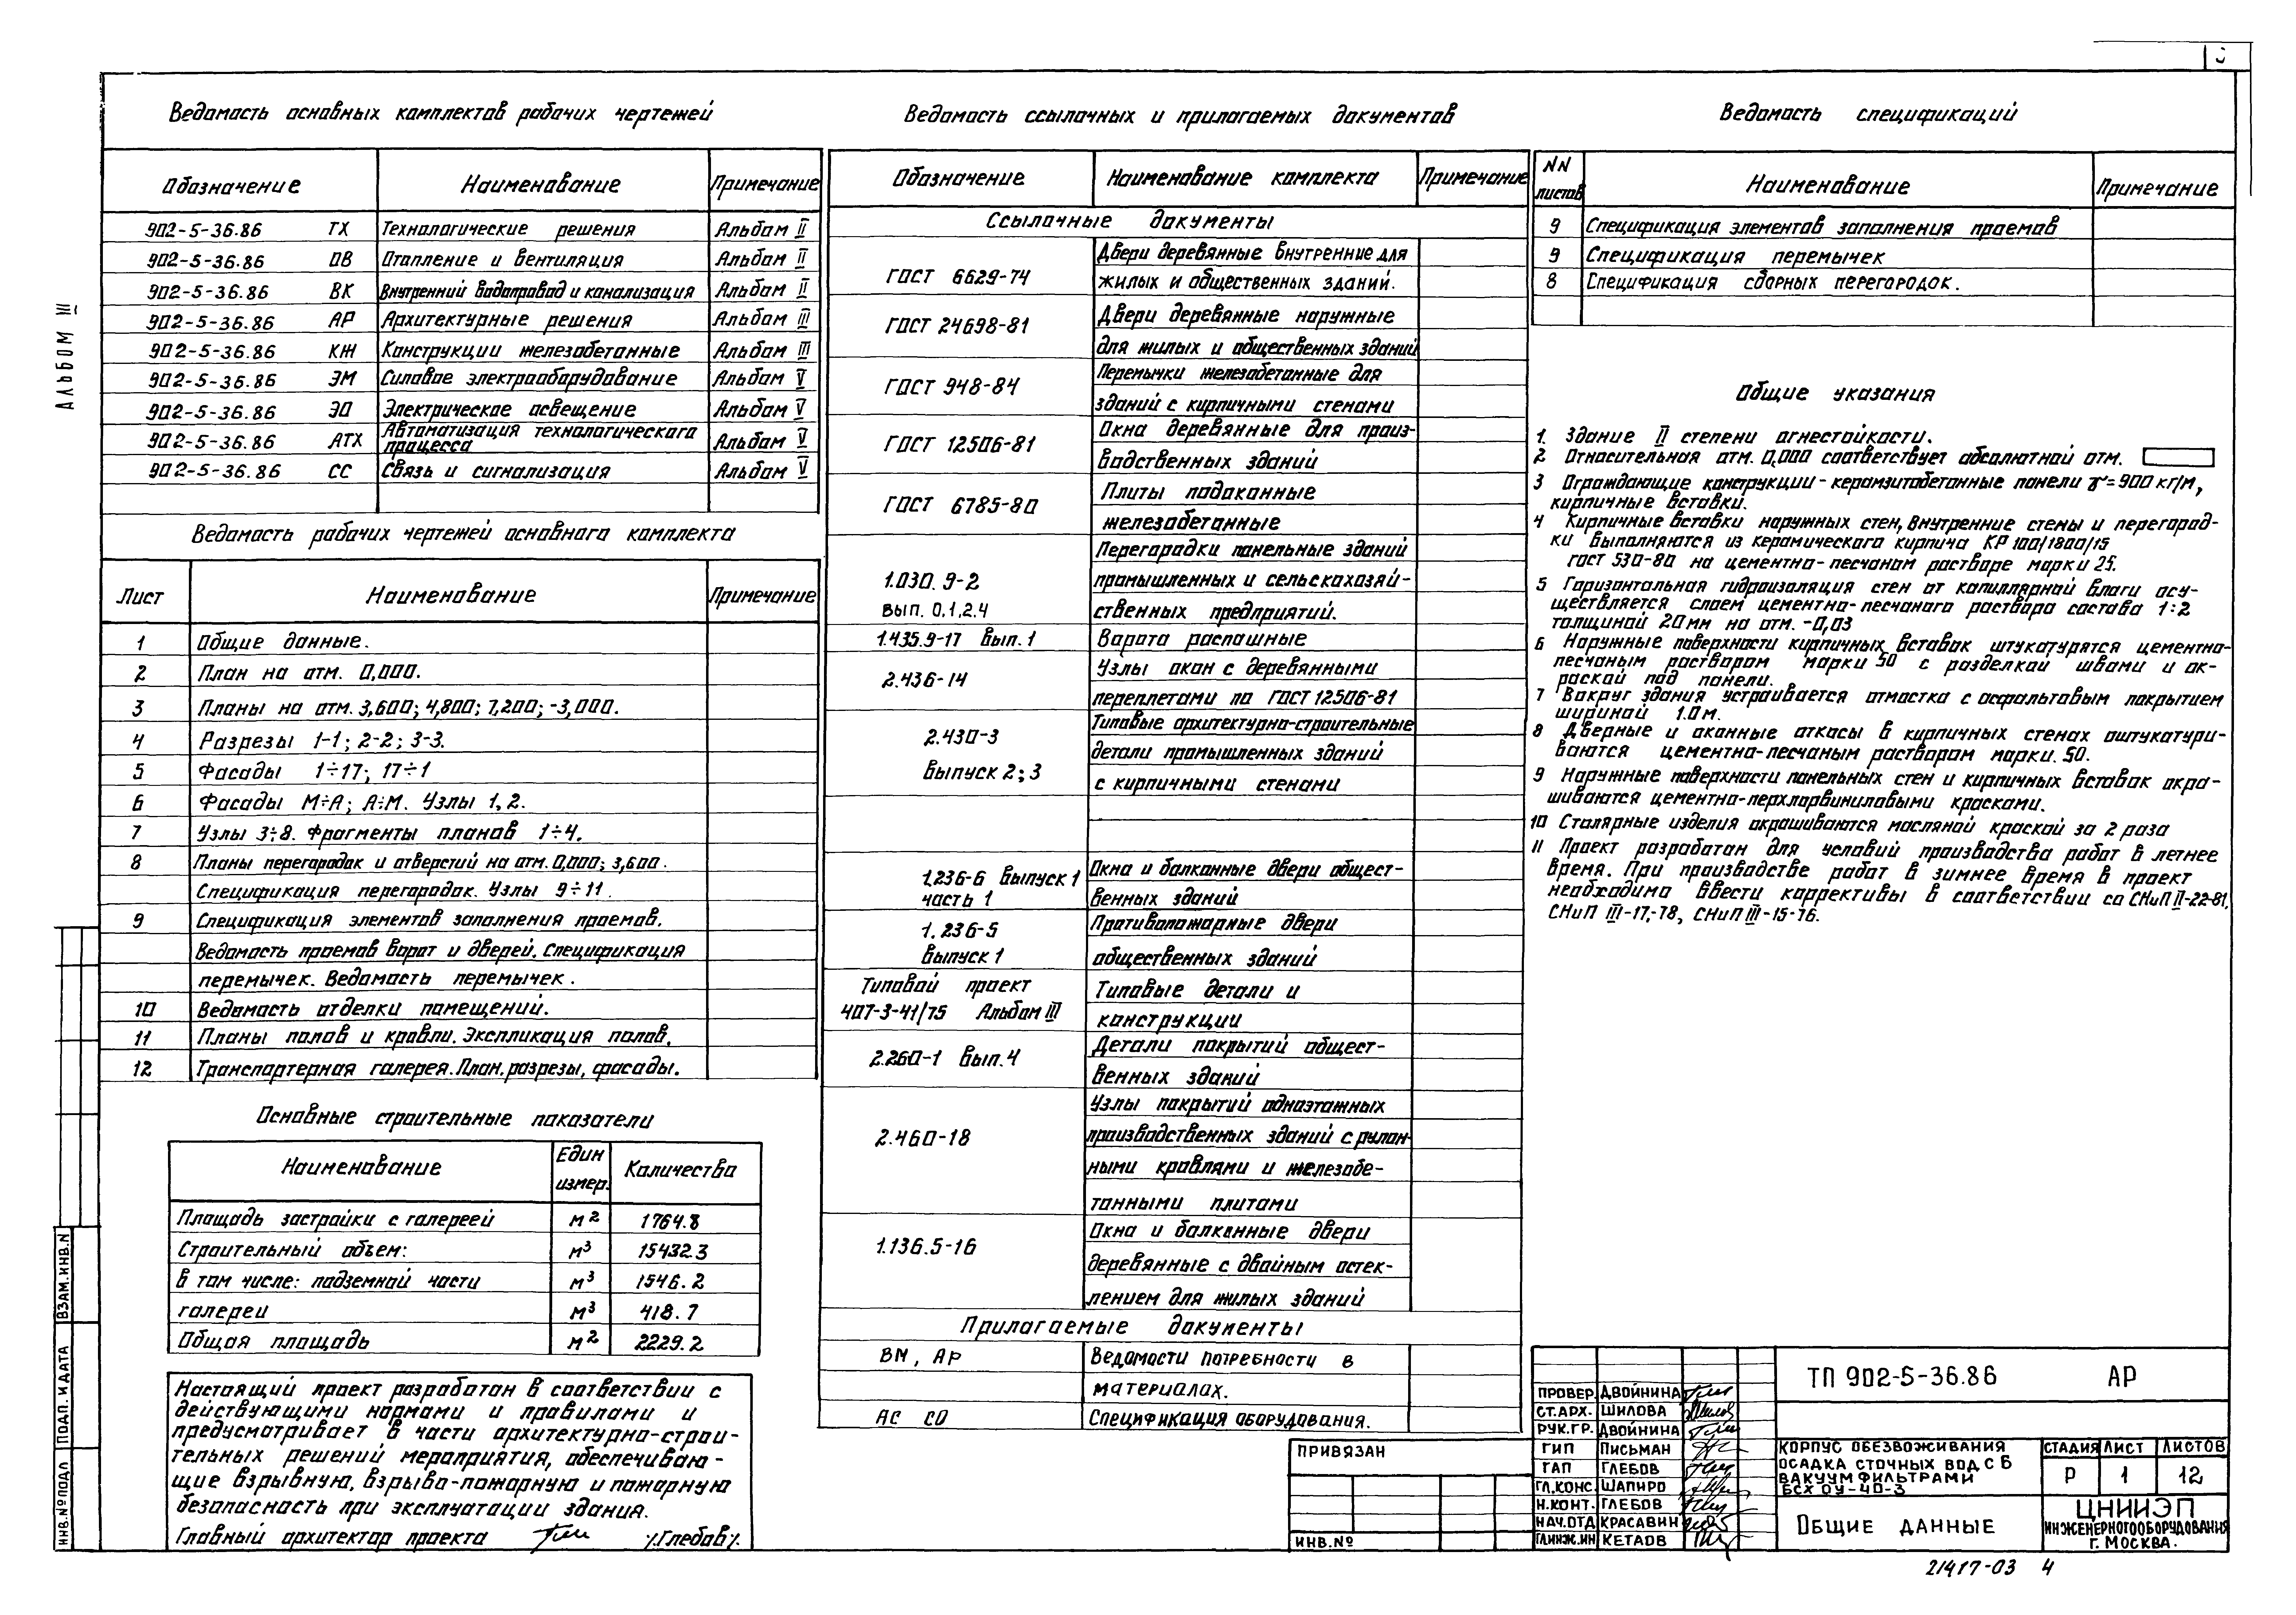 Ведомость основных комплектов рабочих чертежей
Обозначение Наименование Примечание
902-5-36.86 ТХ Технологические решения Альбом II
902-5-36.86 ОВ Отопление и вентиляция Альбом II
902-5-36.86 ВК Внутренний водопровод и канализация Альбом II
902-5-36.86 АР Архитектурные решения Альбом III
902-5-36.86 КЖ Конструкции железобетонные Альбом III
902-5-36.86 ЭМ Силовое электрооборудование Альбом V
902-5-36.86 ЭО Электрическое освещение Альбом V
902-5-36.86 АТХ Автоматизация технологического процесса Альбом V
902-5-36.86 СС Связь и сигнализация Альбом V
Ведомость рабочих чертежей основного комплекта
Лист Наименование Примечание
1 Общие данные.
2 План на отм. 0,000.
3 Планы на отм. 3,600; 4,800; 7,200; -3,000.
4 Разрезы 1-1; 2-2; 3-3.
5 Фасады 1÷17; 17÷1
6 Фасады М÷А; А÷М. Узлы 1, 2.
7 Узлы 3÷8. Фрагменты планов 1÷4.
8 Планы перегородок и отверстий на отм. 0,000; 3,600.
Спецификация перегородок. Узлы 9÷11.
9 Спецификация элементов заполнения проемов.
Ведомость проемов ворот и дверей. Спецификация
перемычек. Ведомость перемычек.
10 Ведомость отделки помещений.
11 Планы полов и кровли. Экспликация полов.
12 Транспортерная галерея. План, разрезы, фасады.
Основные строительные показатели
Наименование Един измер. Количество
Площадь застройки с галереей м2 1764.8
Строительный объем: м3 15432.3
в том числе: подземной части м3 1546.2
галереи м3 418.7
Общая площадь м2 2229.2
Настоящий проект разработан в соответствии с
действующими нормами и правилами и
предусматривает в части архитектурно-строи-
тельных решений мероприятия, обеспечиваю-
щие взрывную, взрыво-пожарную и пожарную
безопасность при эксплуатации здания.
Главный архитектор проекта /Глебов/
Ведомость ссылочных и прилагаемых документов
Обозначение Наименование комплекта Примечание
Ссылочные документы
ГОСТ 6629-74 Двери деревянные внутренние для
жилых и общественных зданий.
ГОСТ 24698-81 Двери деревянные наружные
для жилых и общественных зданий
ГОСТ 948-84 Перемычки железобетонные для
зданий с кирпичными стенами
ГОСТ 12506-81 Окна деревянные для произ-
водственных зданий
ГОСТ 6785-80 Плиты подоконные
железобетонные
1.030.9-2 вып. 0,1,2,4 Перегородки панельные зданий
промышленных и сельскохозяй-
ственных предприятий.
1.435.9-17 вып. 1 Ворота распашные
2.436-14 Узлы окон с деревянными
переплетами по ГОСТ 12506-81
2.430-3 выпуск 2; 3 Типовые архитектурно-строительные
детали промышленных зданий
с кирпичными стенами
1.236-6 выпуск 1 часть 1 Окна и балконные двери общест-
венных зданий
1.236-5 выпуск 1 Противопожарные двери
общественных зданий
Типовой проект 407-3-41/75 Альбом III Типовые детали и
конструкции
2.260-1 вып. 4 Детали покрытий общест-
венных зданий
2.460-18 Узлы покрытий одноэтажных
производственных зданий с рулон-
ными кровлями и железобе-
тонными плитами
1.136.5-16 Окна и балконные двери
деревянные с двойным остек-
лением для жилых зданий
Прилагаемые документы
ВМ, АР Ведомости потребности в
материалах.
АС СО Спецификация оборудования.
Ведомость спецификаций
NN листов Наименование Примечание
9 Спецификация элементов заполнения проемов
9 Спецификация перемычек
8 Спецификация сборных перегородок.
Общие указания
1. Здание II степени огнестойкости.
2 Относительная отм. 0,000 соответствует абсолютной отм.
3 Ограждающие конструкции - керамзитобетонные панели γ=900 кг/м,
кирпичные вставки.
4 Кирпичные вставки наружных стен, внутренние стены и перегород-
ки выполняются из керамического кирпича КР 100/1800/15
гост 530-80 на цементно-песчаном растворе марки 25.
5 Горизонтальная гидроизоляция стен от капиллярной влаги осу-
ществляется слоем цементно-песчаного раствора состава 1:2
толщиной 20мм на отм. -0,03
6 Наружные поверхности кирпичных вставок штукатурятся цементно-
песчаным раствором марки 50 с разделкой швами и ок-
раской под панели.
7 Вокруг здания устраивается отмостка с асфальтовым покрытием
шириной 1.0м.
8 Дверные и оконные откосы в кирпичных стенах оштукатури-
ваются цементно-песчаным раствором марки. 50.
9 Наружные поверхности панельных стен и кирпичных вставок окра-
шиваются цементно-перхлорвиниловыми красками.
10 Столярные изделия окрашиваются масляной краской за 2 раза
11 Проект разработан для условий производства работ в летнее
время. При производстве работ в зимнее время в проект
необходимо ввести коррективы в соответствии со СНиП II-22-81,
СНиП III-17-78, СНиП III-15-76.
ПРИВЯЗАН
ИНВ.№
ПРОВЕР. ДВОЙНИНА
СТ.АРХ. ШИЛОВА
РУК.ГР. ДВОЙНИНА
ГИП ПИСЬМАН
ГАП ГЛЕБОВ
ГЛ.КОНС. ШАПИРО
Н.КОНТ. ГЛЕБОВ
НАЧ.ОТД КРАСАВИН
ГЛ.ИНЖ.ИН КЕТАОВ
ТП 902-5-36.86 АР
КОРПУС ОБЕЗВОЖИВАНИЯ
ОСАДКА СТОЧНЫХ ВОД С 6
ВАКУУМФИЛЬТРАМИ
БСХ ОУ-40-3
СТАДИЯ ЛИСТ ЛИСТОВ
Р 1 12
ОБЩИЕ ДАННЫЕ
ЦНИИЭП
ИНЖЕНЕРНОГО ОБОРУДОВАНИЯ
Г. МОСКВА.
21417-03 4
АЛЬБОМ III
ВЗАМ.ИНВ.N
ПОДП. И ДАТА
ИНВ.№ ПОДЛ